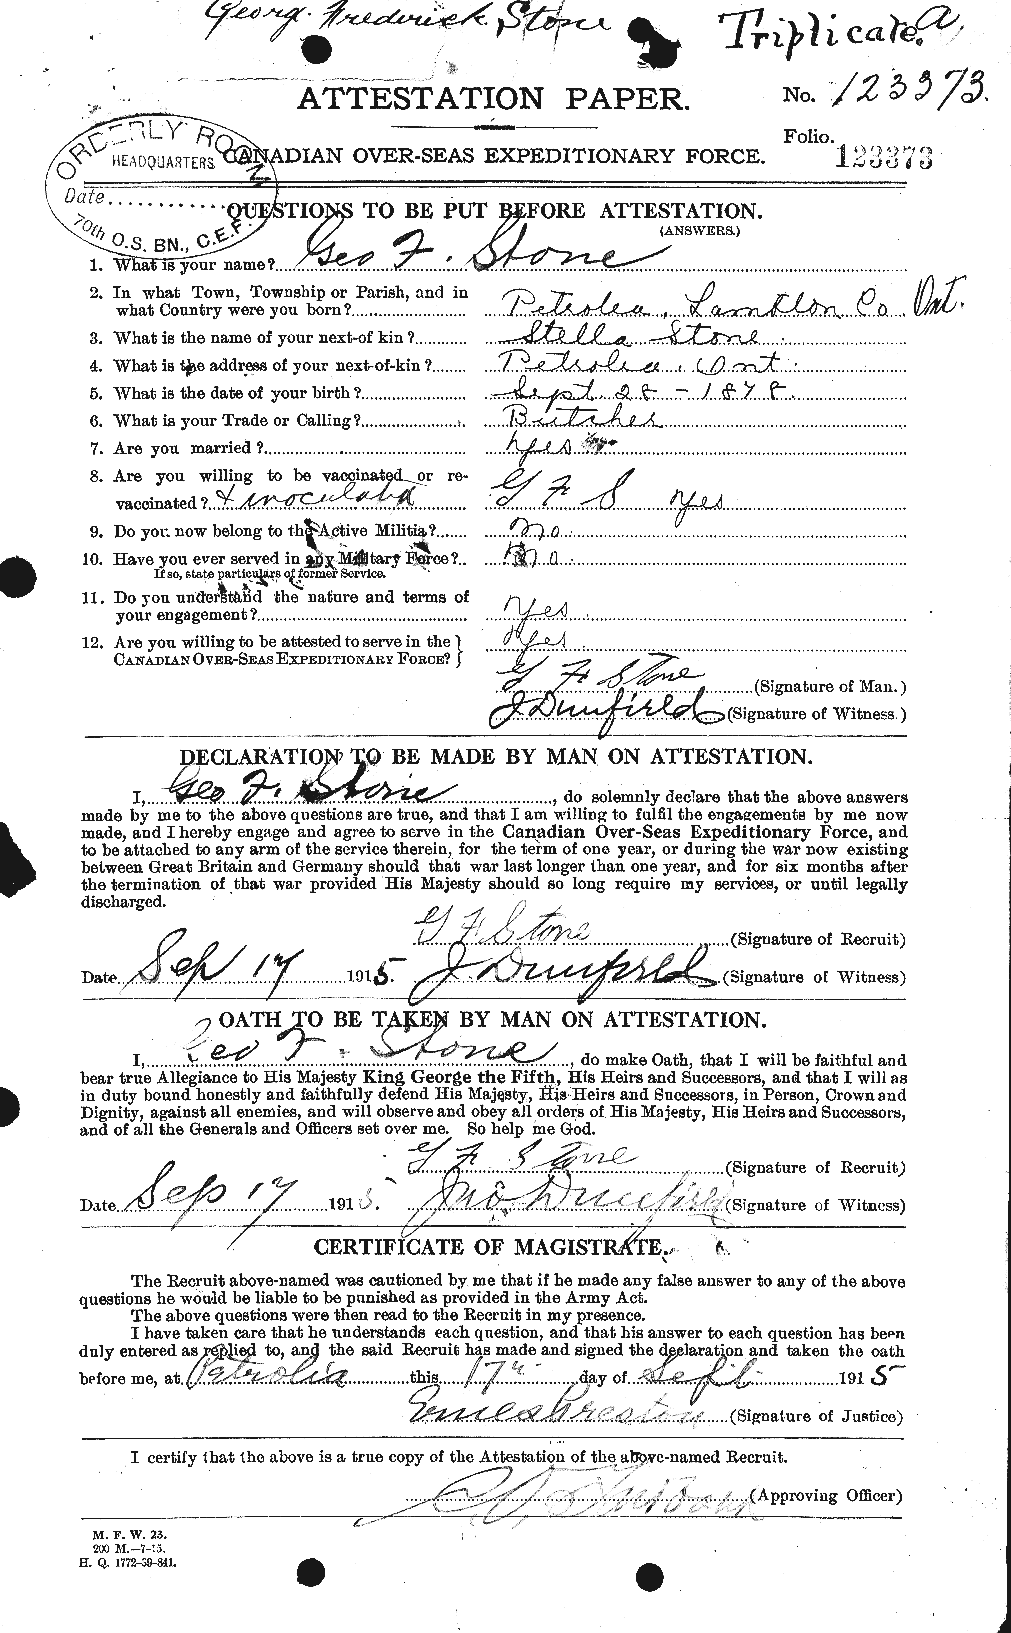 Georg. Frederick Stone
Triplicate.
ATTESTATION PAPER.
No. 123373.
Folio.
123373
ORDERLY ROOM
HEADQUARTERS
Date............
70th O.S. BN., C.E.F.
CANADIAN OVER-SEAS EXPEDITIONARY FORCE.
QUESTIONS TO BE PUT BEFORE ATTESTATION.
(ANSWERS.)
1. What is your name? Geo F. Stone
2. In what Town, Township or Parish, and in
what Country were you born? Petrolea, Lambton Co Ont.
3. What is the name of your next-of kin? Stella Stone
4. What is the address of your next-of-kin? Petrolea, Ont.
5. What is the date of your birth? Sept 28 - 1878.
6. What is your Trade or Calling? Butcher
7. Are you married? Yes
8. Are you willing to be vaccinated or re-
vaccinated? + inoculated G F S Yes
9. Do you now belong to the Active Militia? No.
10. Have you ever served in any Military Force? No.
If so, state particulars of former Service.
11. Do you understand the nature and terms of
your engagement? Yes.
12. Are you willing to be attested to serve in the
CANADIAN OVER-SEAS EXPEDITIONARY FORCE? Yes.
G F Stone (Signature of Man.)
J Dunfield (Signature of Witness.)
DECLARATION TO BE MADE BY MAN ON ATTESTATION.
I, Geo F. Stone, do solemnly declare that the above answers
made by me to the above questions are true, and that I am willing to fulfil the engagements by me now
made, and I hereby engage and agree to serve in the Canadian Over-Seas Expeditionary Force, and
to be attached to any arm of the service therein, for the term of one year, or during the war now existing
between Great Britain and Germany should that war last longer than one year, and for six months after
the termination of that war provided His Majesty should so long require my services, or until legally
discharged.
G F Stone (Signature of Recruit)
Date Sep 17 1915. J. Dunfield (Signature of Witness)
OATH TO BE TAKEN BY MAN ON ATTESTATION.
I, Geo F. Stone, do make Oath, that I will be faithful and
bear true Allegiance to His Majesty King George the Fifth, His Heirs and Successors, and that I will as
in duty bound honestly and faithfully defend His Majesty, His Heirs and Successors, in Person, Crown and
Dignity, against all enemies, and will observe and obey all orders of His Majesty, His Heirs and Successors,
and of all the Generals and Officers set over me. So help me God.
G F Stone (Signature of Recruit)
Date Sep 17 1915. Jno Dunfield (Signature of Witness)
CERTIFICATE OF MAGISTRATE.
The Recruit above-named was cautioned by me that if he made any false answer to any of the above
questions he would be liable to be punished as provided in the Army Act.
The above questions were then read to the Recruit in my presence.
I have taken care that he understands each question, and that his answer to each question has been
duly entered as replied to, and the said Recruit has made and signed the declaration and taken the oath
before me, at Petrolia this 17th day of Sept 1915
(Signature of Justice)
I certify that the above is a true copy of the Attestation of the above-named Recruit.
(Approving Officer)
M. F. W. 23.
200 M.—7-15.
H. Q. 1772-39-841.